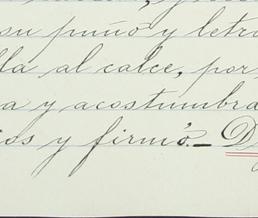 su puño y letra
lla al calce, por
a y acostumbra
ios y firmó.— D